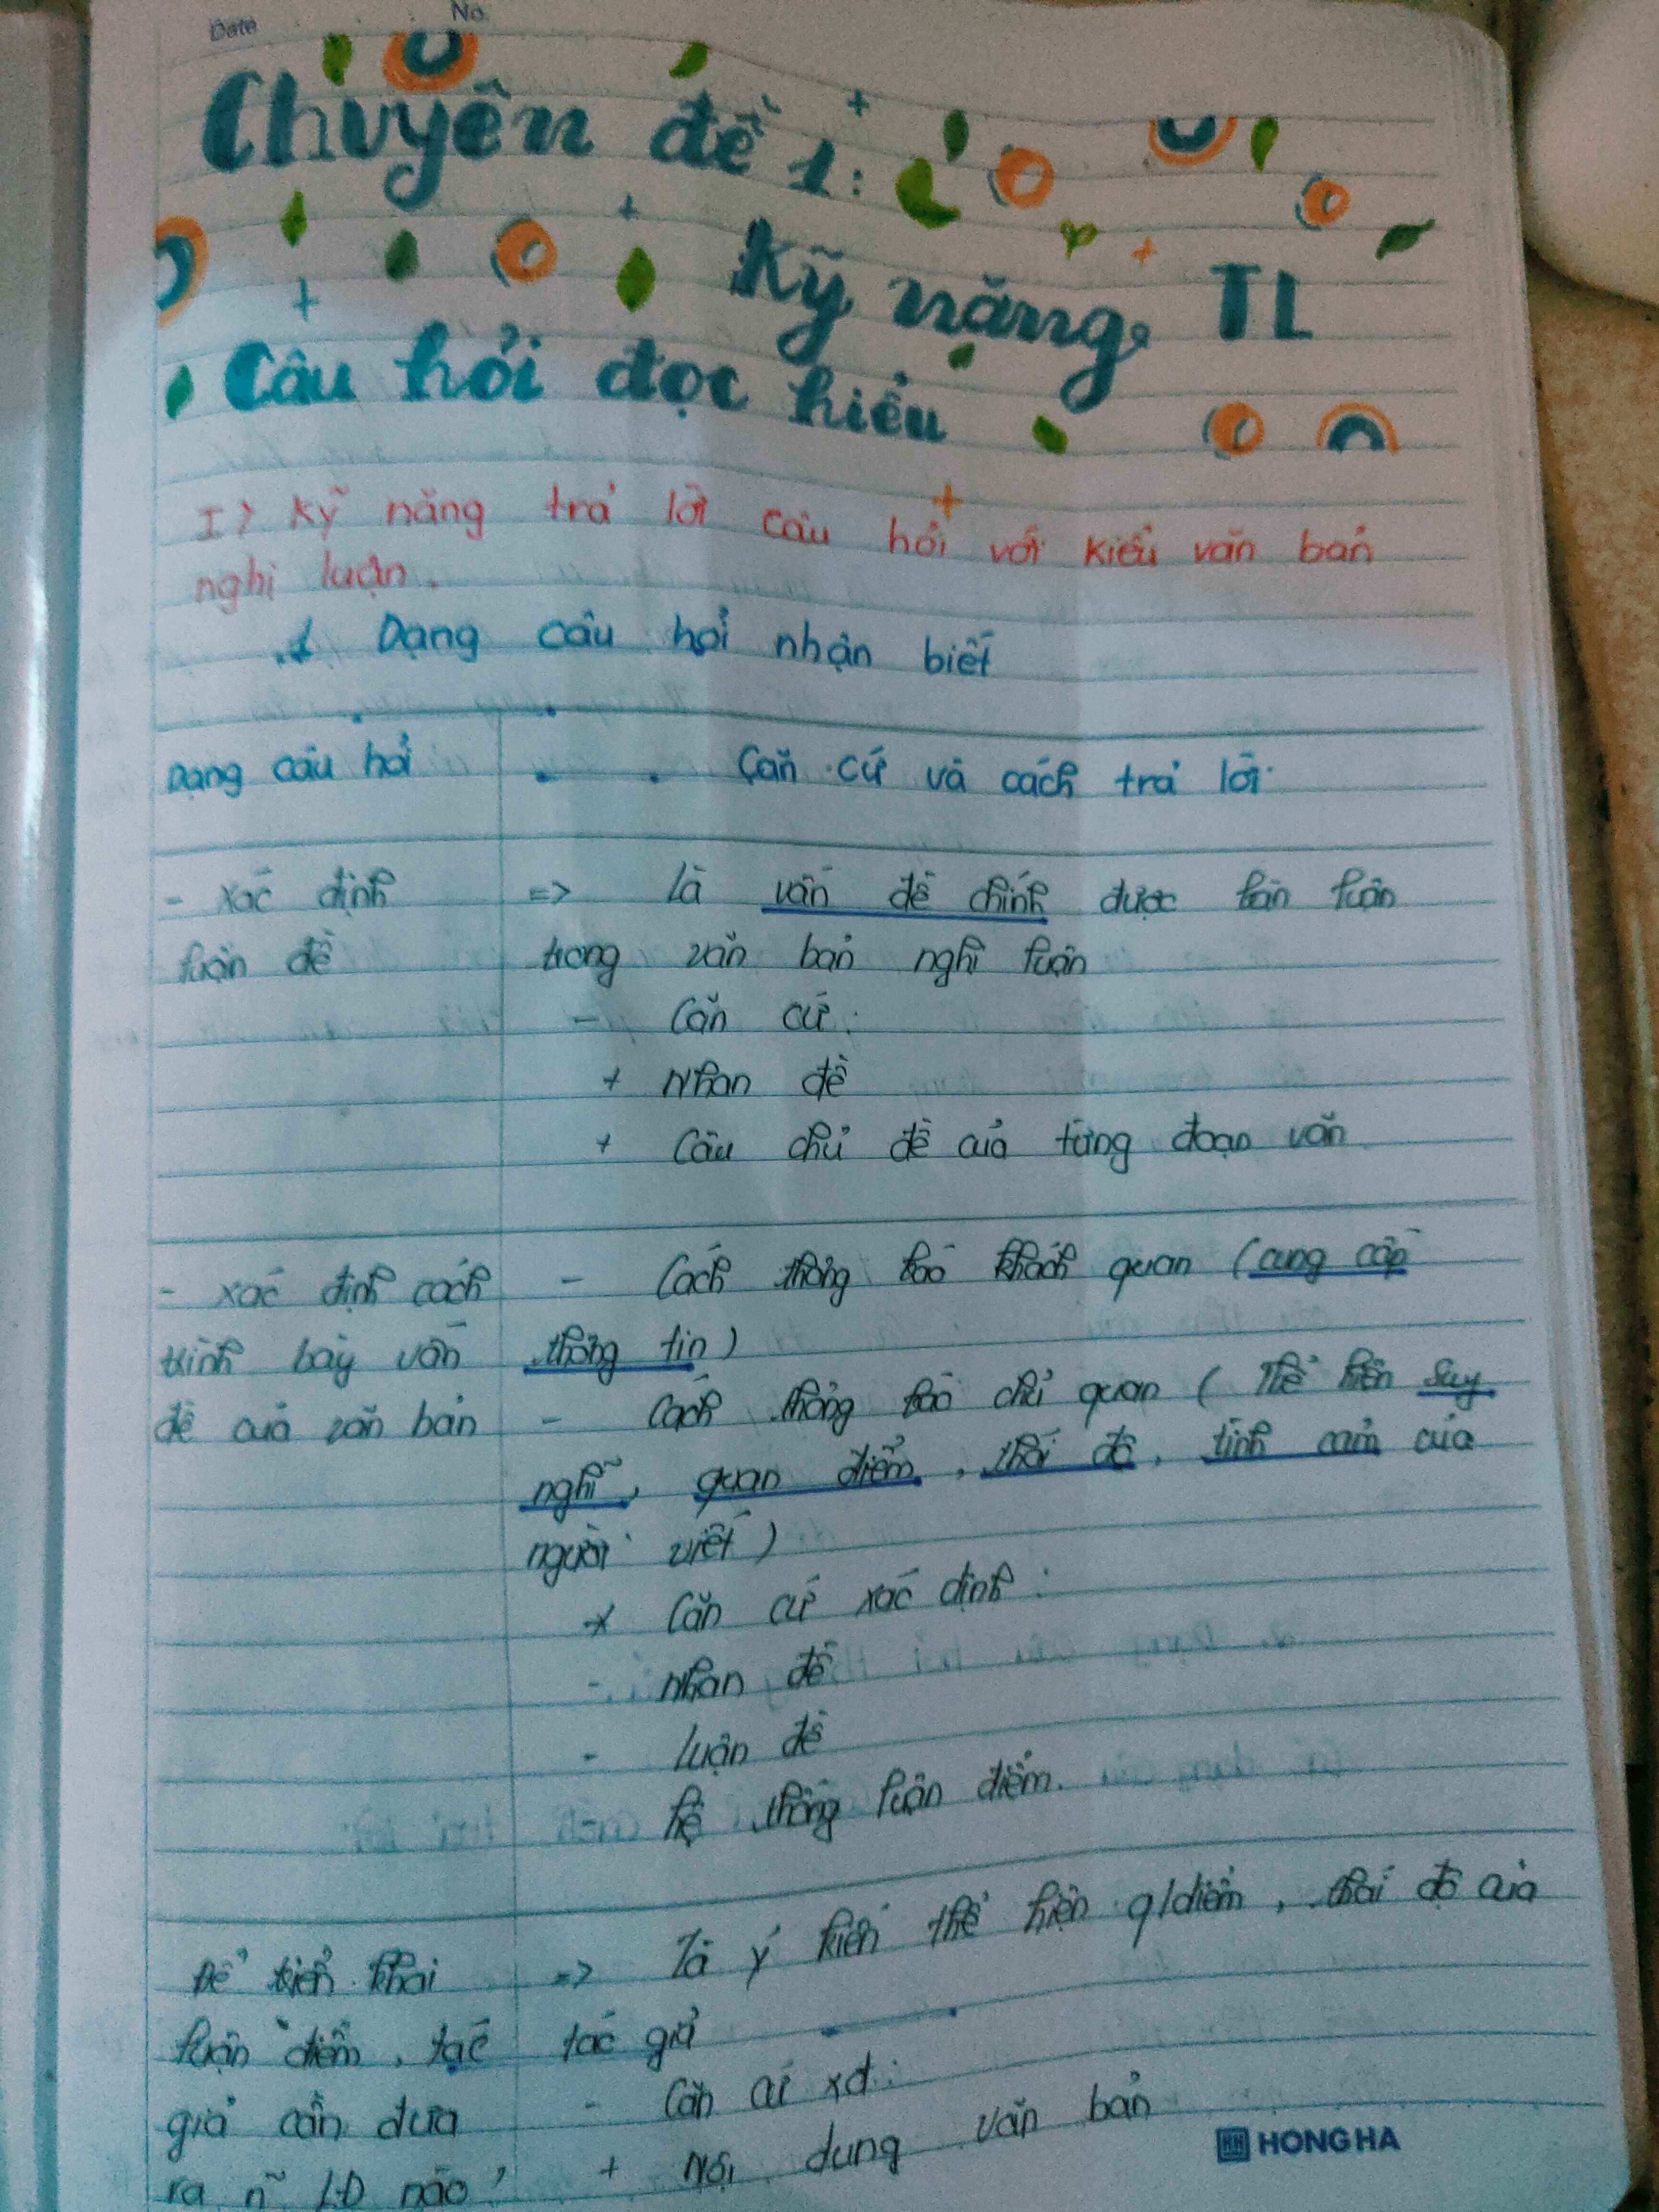 Date No.
Chuyên đề 1:
Kỹ năng TL
Câu hỏi đọc hiểu
I> Kỹ năng trả lời câu hỏi với kiểu văn bản
nghị luận.
1 Dạng câu hỏi nhận biết
Dạng câu hỏi
Căn cứ và cách trả lời
- xác định
luận đề
=> là vấn đề chính được bàn luận
trong văn bản nghị luận
- Căn cứ:
+ Nhan đề
+ Câu chủ đề của từng đoạn văn
- xác định cách
trình bày vấn
đề của văn bản
- Cách thông báo khách quan (cung cấp
thông tin)
- Cách thông báo chủ quan (Thể hiện suy
nghĩ, quan điểm, thái độ, tình cảm của
người viết)
* Căn cứ xác định:
- Nhan đề
- luận đề
hệ thống luận điểm.
Để triển khai
luận điểm, tác
giả cần đưa
ra n~ LĐ nào?
=> là ý kiến thể hiện q/điểm, thái độ của
tác giả
- Căn cứ xđ:
+ Nội dung văn bản
HONG HA